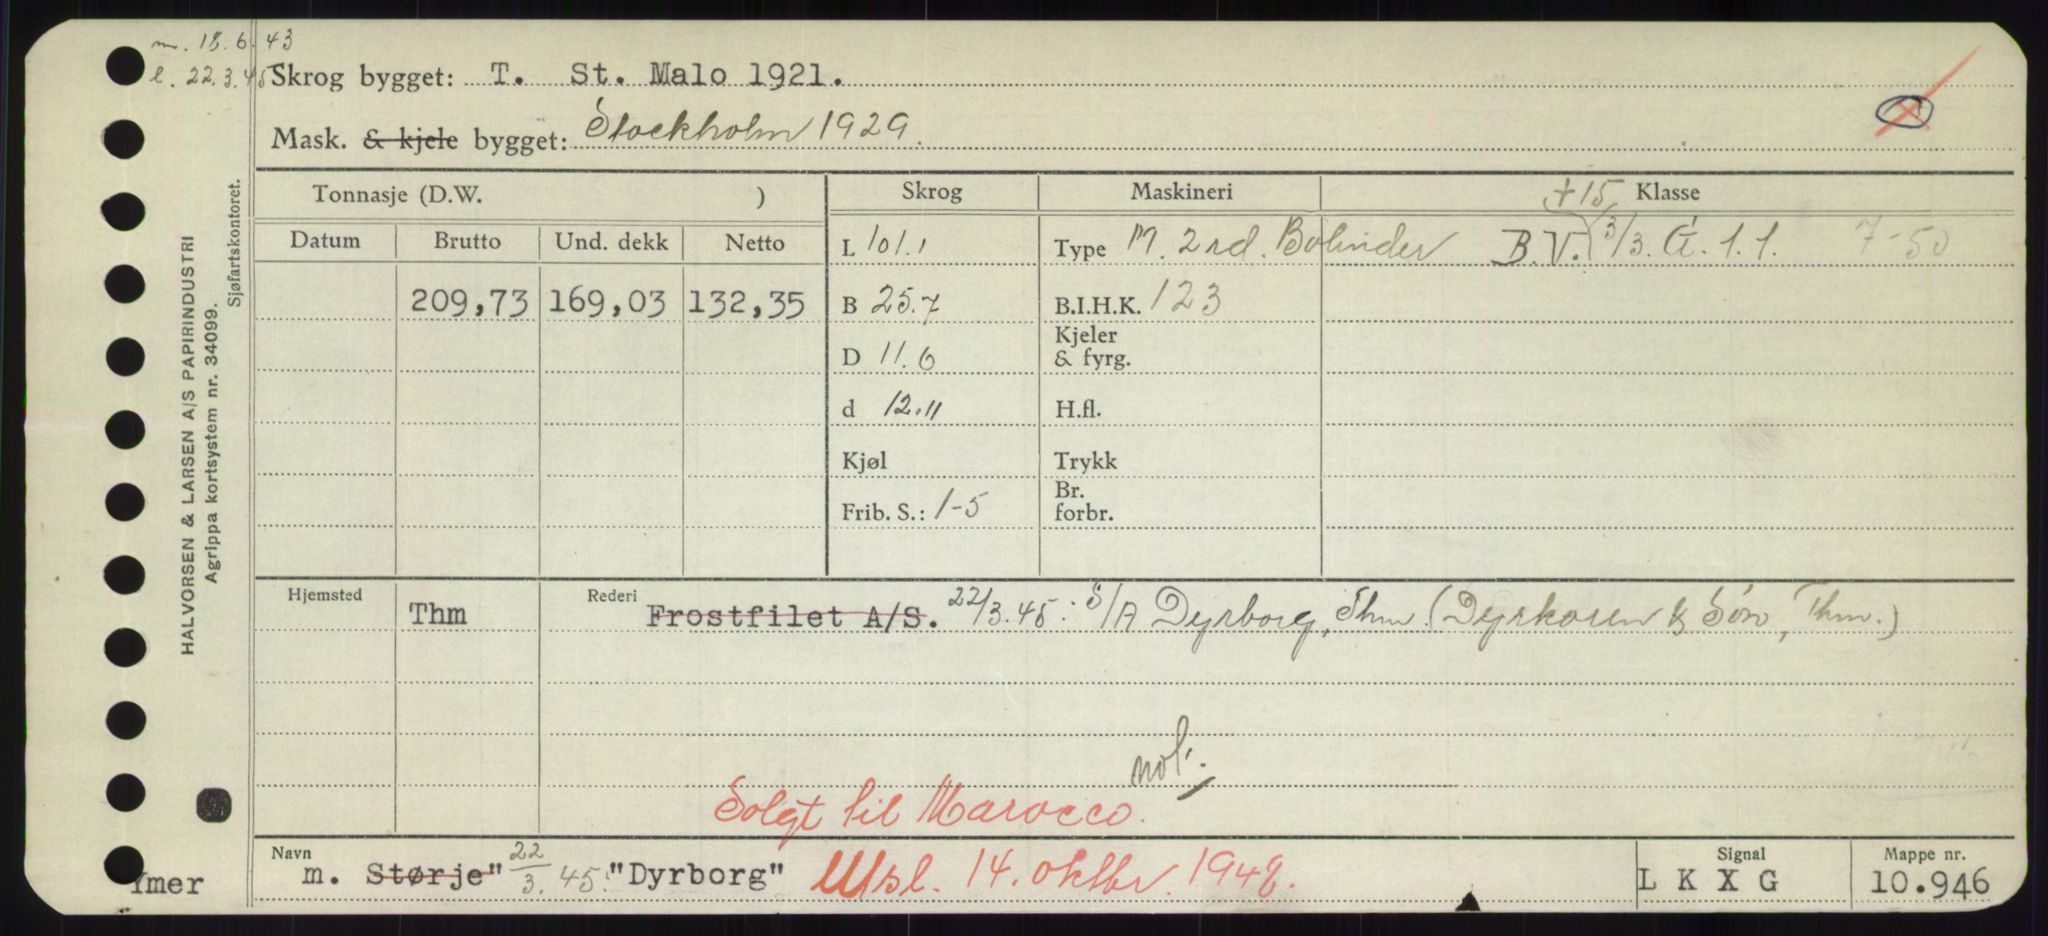 m. 18.6.43
l. 22.3.45
Skrog bygget: T. St. Malo 1921.
Mask. & kjele bygget: Stockholm 1929.
Tonnasje (D.W. )
Skrog
Maskineri
+15
Klasse
Datum Brutto Und. dekk Netto
L 101.1
Type M. 2 rd. Bolinder
B.V. 3/3. G. 1. 1. 7-50
209,73 169,03 132,35
B 25.7
B.I.H.K. 123
Kjeler
& fyrg.
D 11.6
d 12.11
H.fl.
Kjøl
Trykk
Frib. S.: 1-5
Br.
forbr.
Hjemsted Thm
Rederi Frostfilet A/S. 22/3.45. S/A Dyrborg, Thm. (Dyrkoren & Søn, Thm.)
Solgt til Marocco.
Navn
m. Størje" 22/3.45. "Dyrborg" Utsl. 14. oktbr. 1948.
Ymer
Signal
L K X G
Mappe nr.
10.946
HALVORSEN & LARSEN A/S PAPIRINDUSTRI
Agrippa kortsystem nr. 34099.
Sjøfartskontoret.